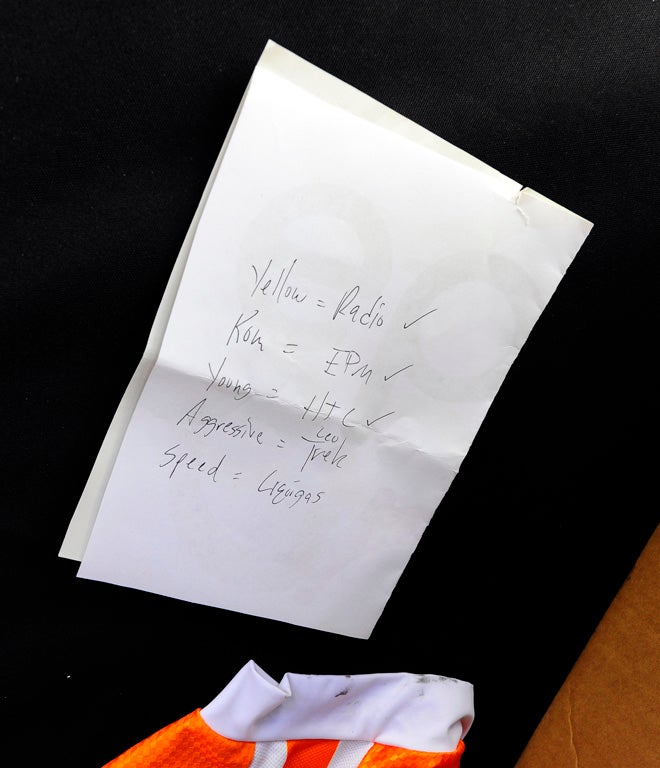 Yellow = Radio ✓
Kom = EPM ✓
Young = HTC ✓
Aggressive = Leo Trek
Speed = Liquigas